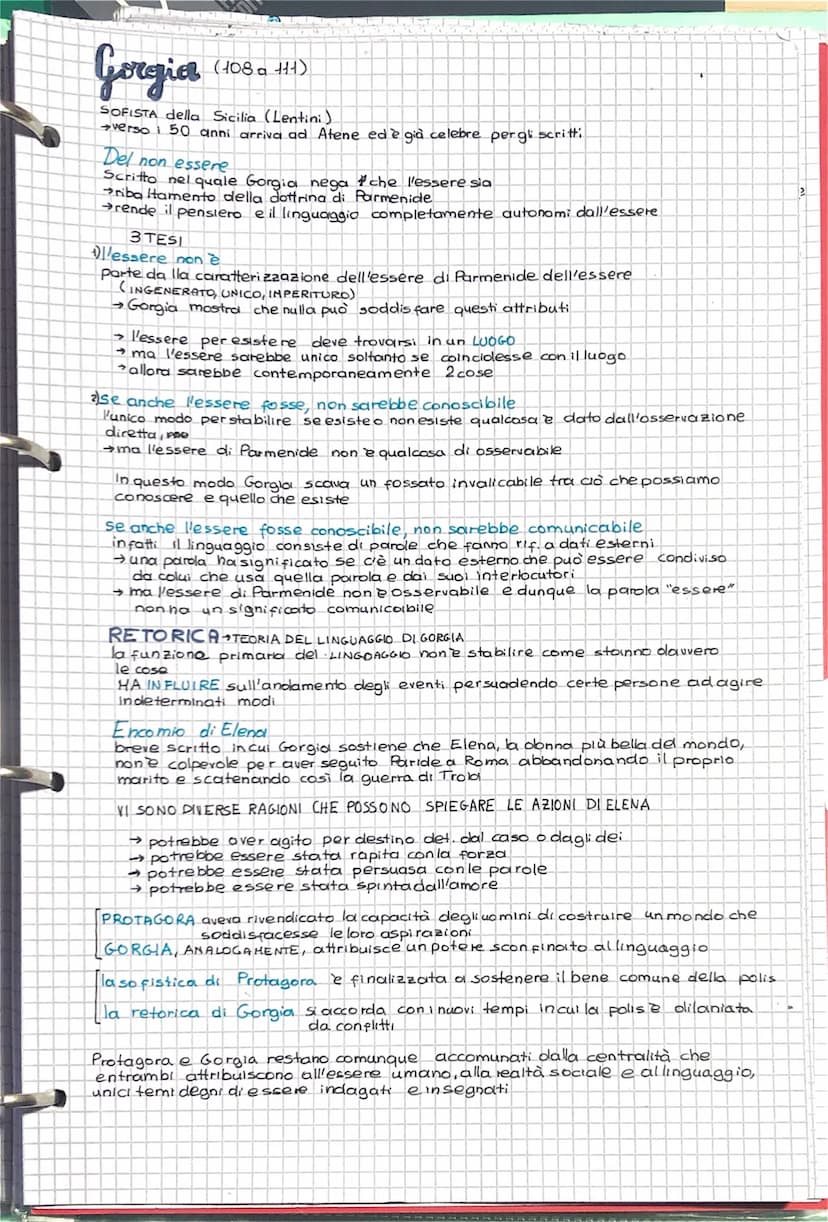 Gorgia (108 a 111)
SOFISTA della Sicilia (Lentini)
→verso i 50 anni arriva ad Atene ed è già celebre per gli scritti
Del non essere
Scritto nel quale Gorgia nega che l'essere sia
→ribaltamento della dottrina di Parmenide
→rende il pensiero e il linguaggio completamente autonomi dall'essere
3 TESI
1) l'essere non è
parte dalla caratterizzazione dell'essere di Parmenide dell'essere
(INGENERATO, UNICO, IMPERITURO)
→ Gorgia mostra che nulla può soddisfare questi attributi
→ l'essere per esistere deve trovarsi in un LUOGO
→ ma l'essere sarebbe unico soltanto se coincidesse con il luogo
→ allora sarebbe contemporaneamente 2 cose
2) se anche l'essere fosse, non sarebbe conoscibile
l'unico modo per stabilire se esiste o non esiste qualcosa è dato dall'osservazione
diretta,
→ma l'essere di Parmenide non è qualcosa di osservabile
In questo modo Gorgia scava un fossato invalicabile tra ciò che possiamo
conoscere e quello che esiste
se anche l'essere fosse conoscibile, non sarebbe comunicabile
infatti il linguaggio consiste di parole che fanno rif. a dati esterni
→ una parola ha significato se c'è un dato esterno che può essere condiviso
da colui che usa quella parola e dai suoi interlocutori
→ ma l'essere di Parmenide non è osservabile e dunque la parola "essere"
non ha un significato comunicabile
RETORICA→TEORIA DEL LINGUAGGIO DI GORGIA
la funzione primaria del LINGUAGGIO non è stabilire come stanno davvero
le cose
MA INFLUIRE sull'andamento degli eventi persuadendo certe persone ad agire
in determinati modi
Encomio di Elena
breve scritto in cui Gorgia sostiene che Elena, la donna più bella del mondo,
non è colpevole per aver seguito Paride a Roma abbandonando il proprio
marito e scatenando così la guerra di Troia
VI SONO DIVERSE RAGIONI CHE POSSONO SPIEGARE LE AZIONI DI ELENA
→ potrebbe aver agito per destino det. dal caso o dagli dei
→ potrebbe essere stata rapita con la forza
→ potrebbe essere stata persuasa con le parole
→ potrebbe essere stata spinta dall'amore
PROTAGORA aveva rivendicato la capacità degli uomini di costruire un mondo che
soddisfacesse le loro aspirazioni
GORGIA, ANALOGAMENTE, attribuisce un potere sconfinato al linguaggio
la sofistica di Protagora è finalizzata a sostenere il bene comune della polis
la retorica di Gorgia si accorda con i nuovi tempi in cui la polis è dilaniata
da conflitti
Protagora e Gorgia restano comunque accomunati dalla centralità che
entrambi attribuiscono all'essere umano, alla realtà sociale e al linguaggio,
unici temi degni di essere indagati e insegnati